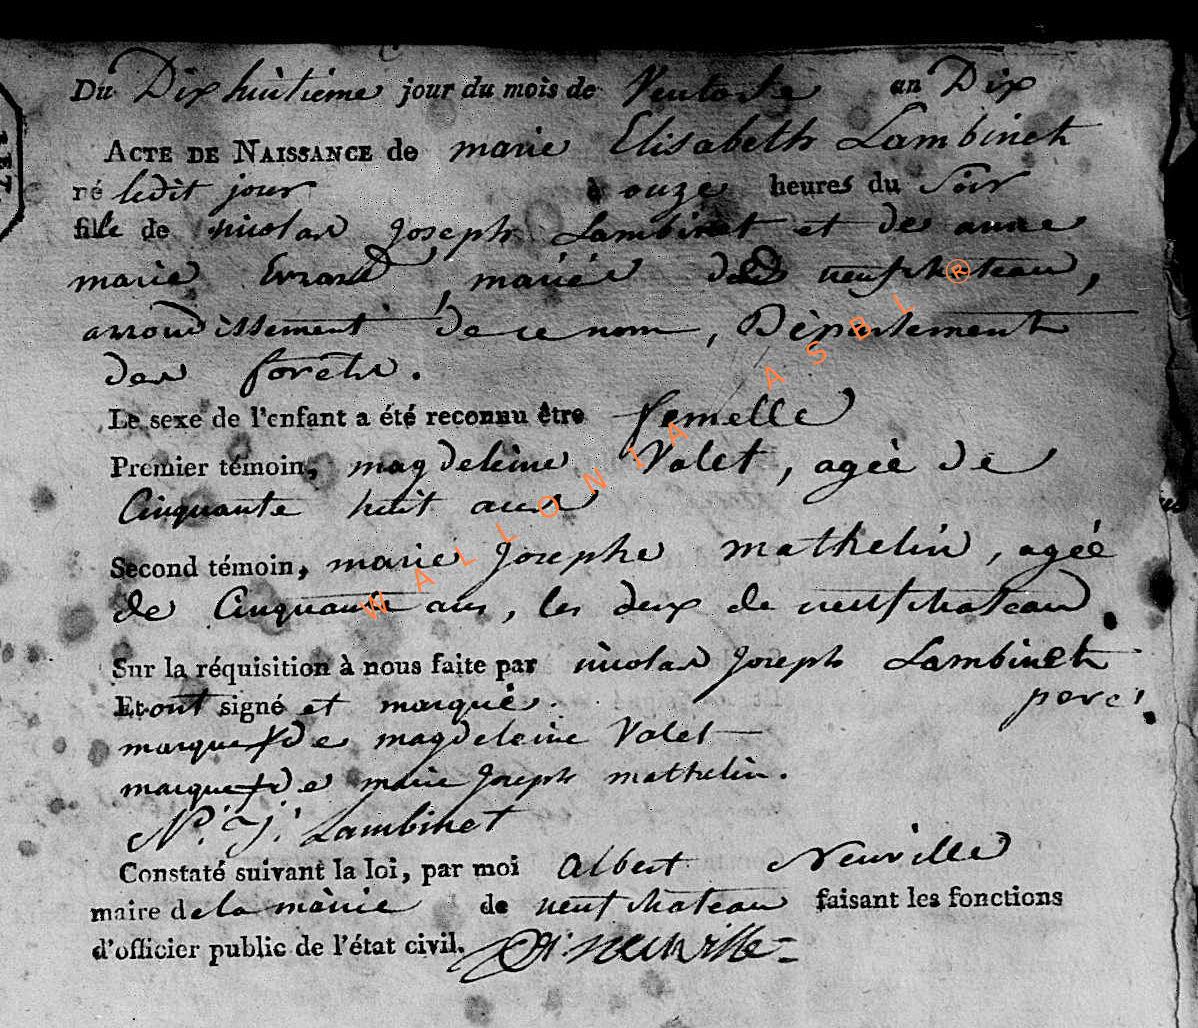 Du Dix huitieme jour du mois de Ventose an Dix
ACTE DE NAISSANCE de marie Elisabeth Lambinet
né ledit jour à onze heures du Soir
fille de nicolas Joseph Lambinet et de anne
marie Evrard, mariés de neufchateau,
arrondissement de ce nom, Département
des forêts.
Le sexe de l'enfant a été reconnu être femelle
Premier témoin, magdeleine Valet, agée de
Cinquante huit ans
Second témoin, marie Josephe mathelin, agée
de Cinquante ans, les deux de neufchateau.
Sur la réquisition à nous faite par nicolas Joseph Lambinet
pere.
Et ont signé et marqué.
marque de magdeleine Valet
marque de marie Joseph mathelin.
N. J. Lambinet
Constaté suivant la loi, par moi Albert Neuville
maire de la mairie de neufchateau faisant les fonctions
d'officier public de l'état civil. A. neuville
WALLONIA ASBL ®